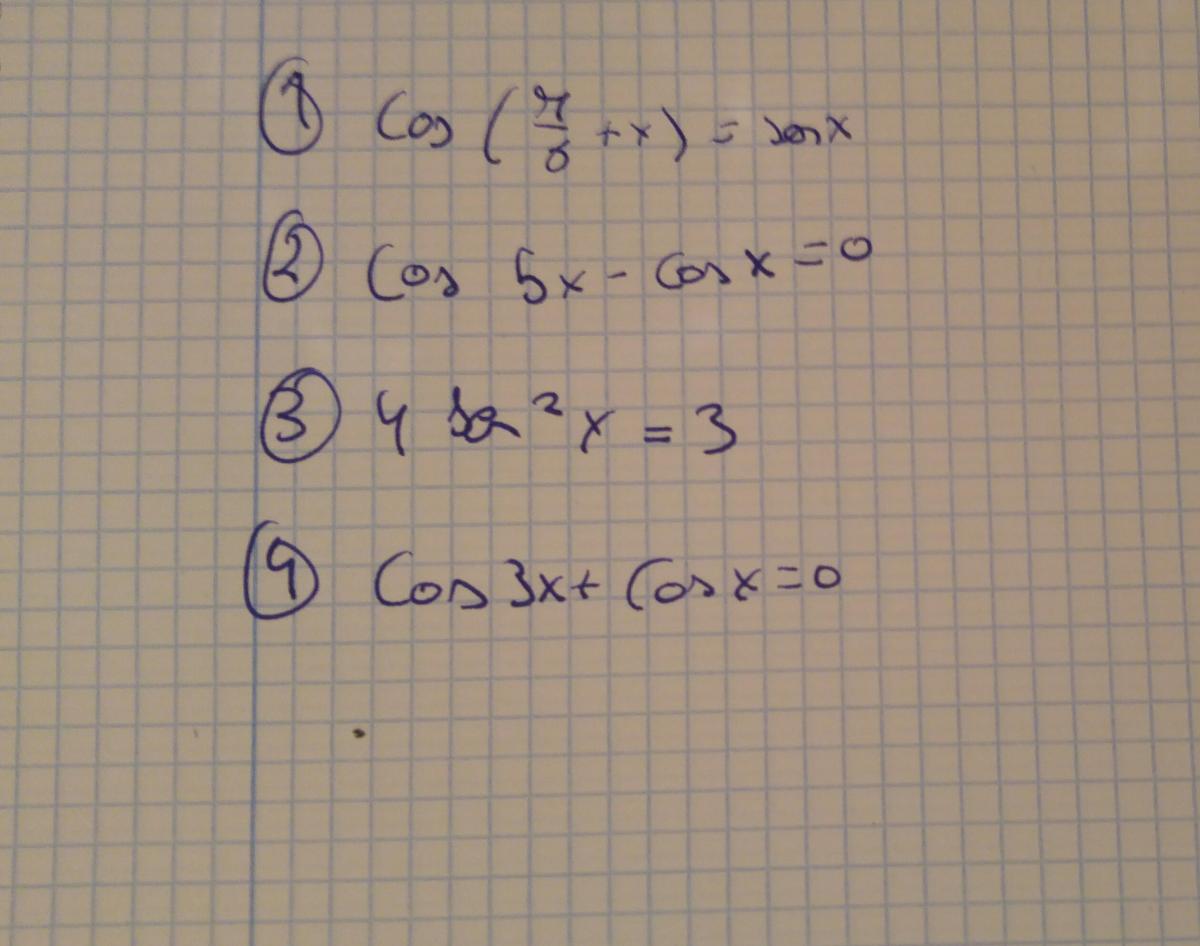 ① cos (π/6 + x) = sen x
② cos 5x - cos x = 0
③ 4 sen² x = 3
④ cos 3x + cos x = 0